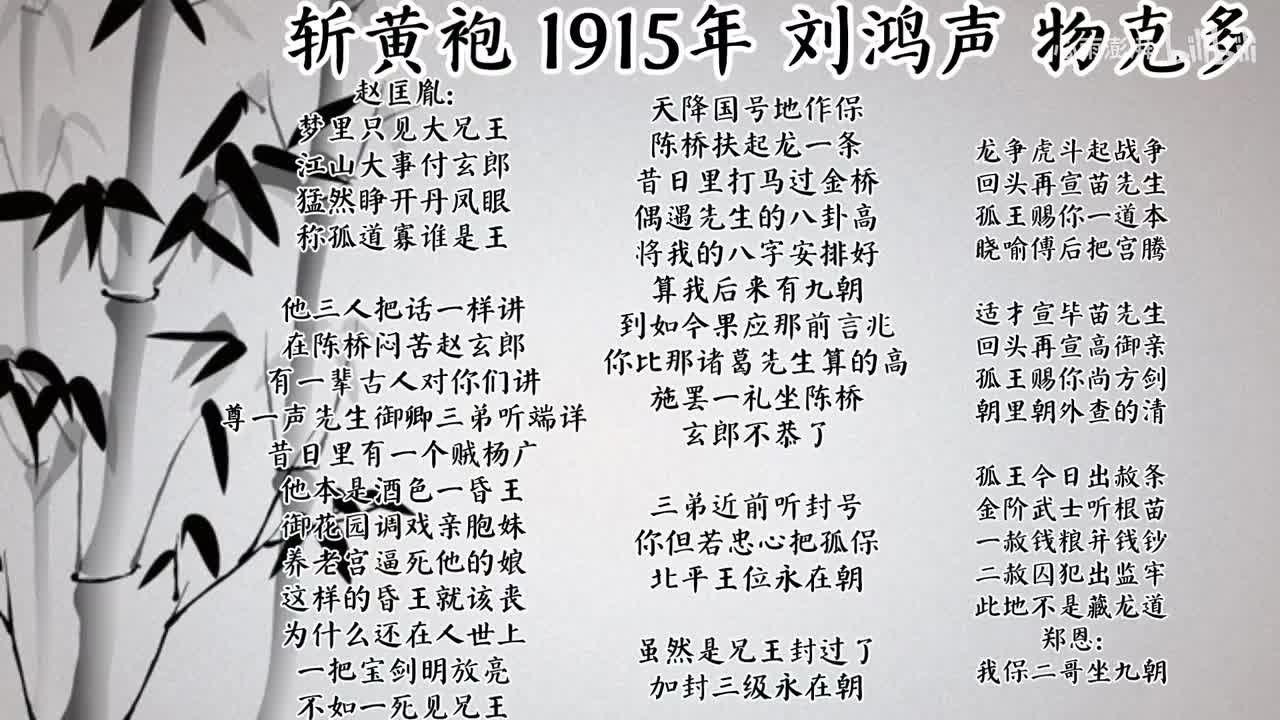 斩黄袍 1915年 刘鸿声 物克多
赵匡胤：
梦里只见大兄王
江山大事付玄郎
猛然睁开丹凤眼
称孤道寡谁是王
他三人把话一样讲
在陈桥闷苦赵玄郎
有一辈古人对你们讲
尊一声先生御卿三弟听端详
昔日里有一个贼杨广
他本是酒色一昏王
御花园调戏亲胞妹
养老宫逼死他的娘
这样的昏王就该丧
为什么还在人世上
一把宝剑明放亮
不如一死见兄王
天降国号地作保
陈桥扶起龙一条
昔日里打马过金桥
偶遇先生的八卦高
将我的八字安排好
算我后来有九朝
到如今果应那前言兆
你比那诸葛先生算的高
施罢一礼坐陈桥
玄郎不恭了
三弟近前听封号
你但若忠心把孤保
北平王位永在朝
虽然是兄王封过了
加封三级永在朝
龙争虎斗起战争
回头再宣苗先生
孤王赐你一道本
晓喻傅后把宫腾
适才宣毕苗先生
回头再宣高御亲
孤王赐你尚方剑
朝里朝外查的清
孤王今日出赦条
金阶武士听根苗
一赦钱粮并钱钞
二赦囚犯出监牢
此地不是藏龙道
郑恩：
我保二哥坐九朝